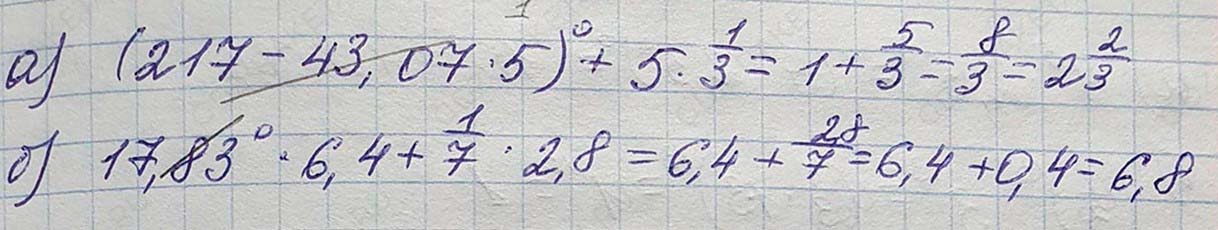 а) (217 - 43,07 · 5)⁰ + 5 · 1/3 = 1 + 5/3 = 8/3 = 2 2/3
б) 17,83⁰ · 6,4 + 1/7 · 2,8 = 6,4 + 28/7 = 6,4 + 0,4 = 6,8